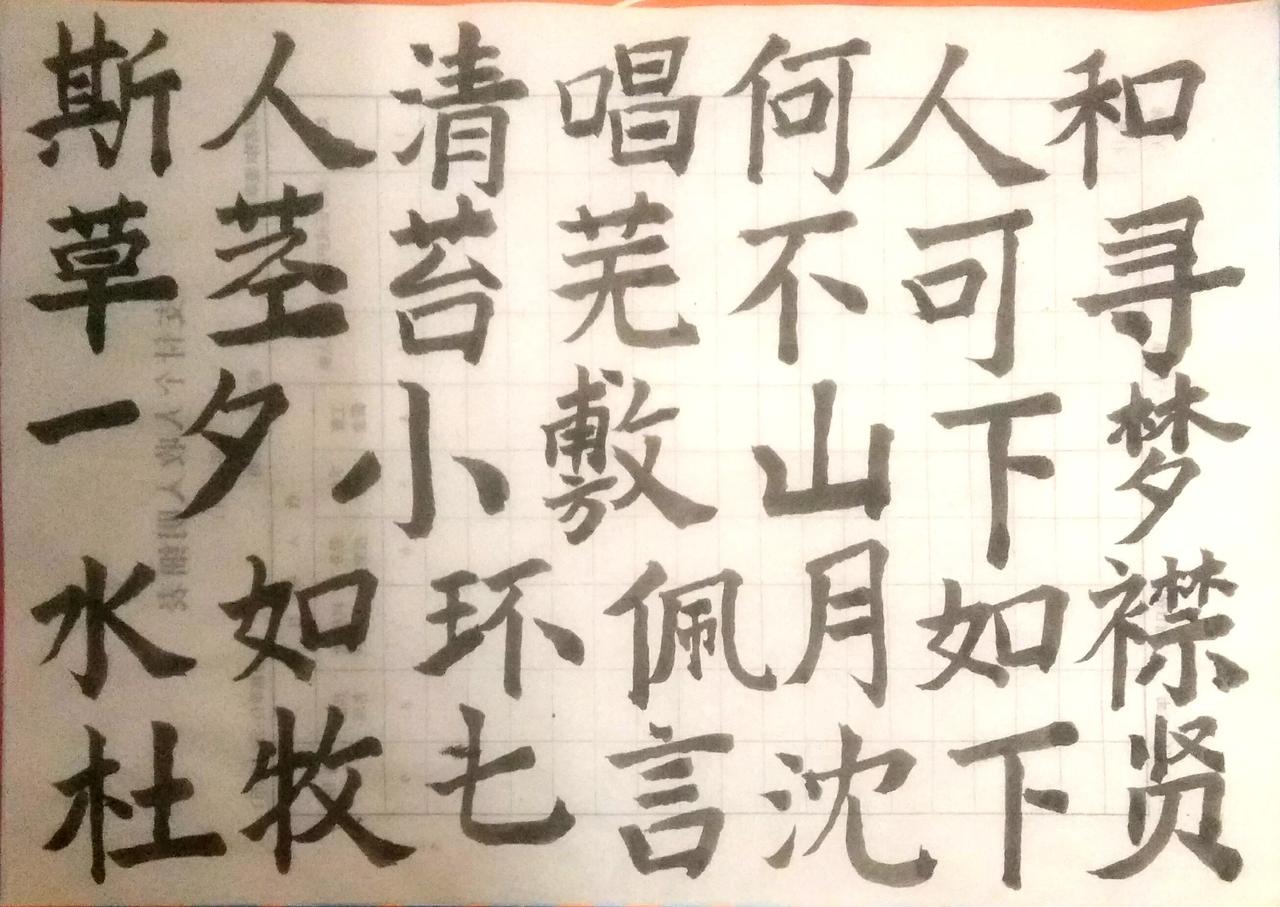 斯人清唱何人和
草茎苔芜不可寻
一夕小敷山下梦
水如环佩月如襟
杜牧七言沈下贤